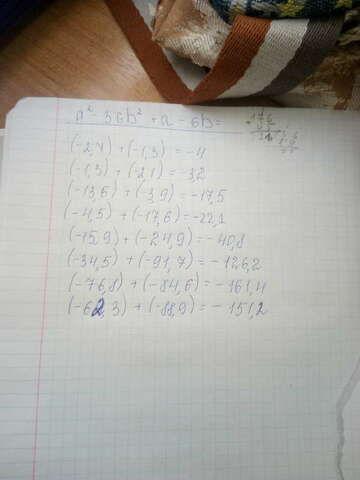 a² - 36b² + a - 6b =
(-2,7) + (-1,3) = -4
(-1,3) + (-2,1) = -3,2
(-13,6) + (-3,9) = -17,5
(-4,5) + (-17,6) = -22,1
(-15,9) + (-24,9) = -40,8
(-34,5) + (-91,7) = -126,2
(-76,8) + (-84,6) = -161,4
(-62,3) + (-88,9) = -151,2